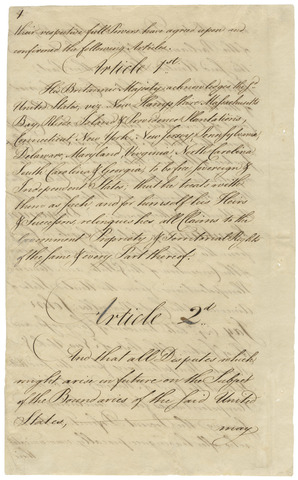 4.
their respective full Powers have agreed upon and
confirmed the following Articles.
Article 1st
His Britannic Majesty acknowledges the sd
United States, viz. New Hampshire Massachusetts
Bay, Rhode Island & Providence Plantations,
Connecticut, New York, New Jersey, Pennsylvania,
Delaware, Maryland, Virginia, North Carolina,
South Carolina & Georgia, to be free sovereign &
Independent States; that he treats with
them as such, and for himself his Heirs
& Successors, relinquishes all Claims to the
Government Propriety & Territorial Rights
of the same & every Part thereof.
Article 2d
And that all Disputes which
might arise in future on the Subject
of the Boundaries of the said United
States,
may